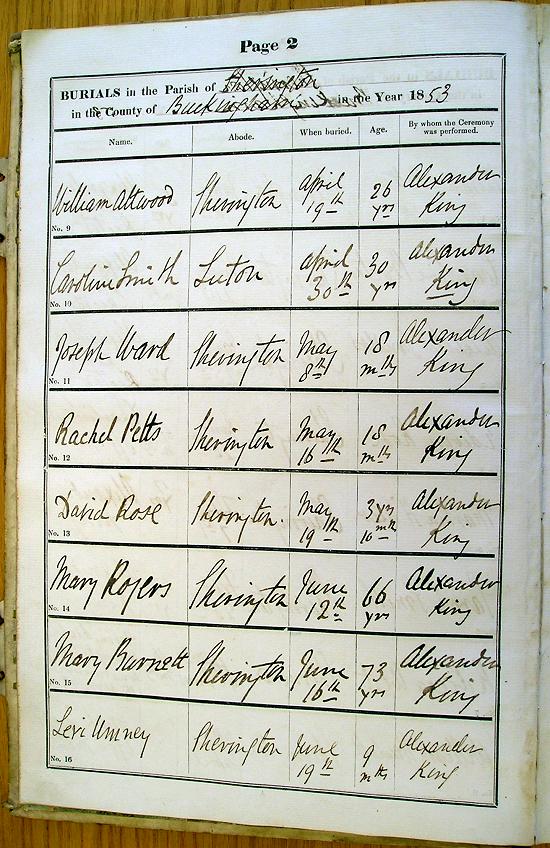 Page 2
BURIALS in the Parish of Sherington
in the County of Buckingham in the Year 1853
Name. Abode. When buried. Age. By whom the Ceremony was performed.
William Attwood Sherington April 19th 26 yrs Alexander King
No. 9
Caroline Smith Luton April 30th 30 yrs Alexander King
No. 10
Joseph Ward Sherington May 8th 18 mths Alexander King
No. 11
Rachel Petts Sherington May 16th 18 mths Alexander King
No. 12
David Rose Sherington. May 19th 3 yrs 10 mths Alexander King
No. 13
Mary Rogers Sherington June 12th 66 yrs Alexander King
No. 14
Mary Burnett Sherington June 16th 73 yrs Alexander King
No. 15
Levi Umney Sherington June 19th 9 mths Alexander King
No. 16